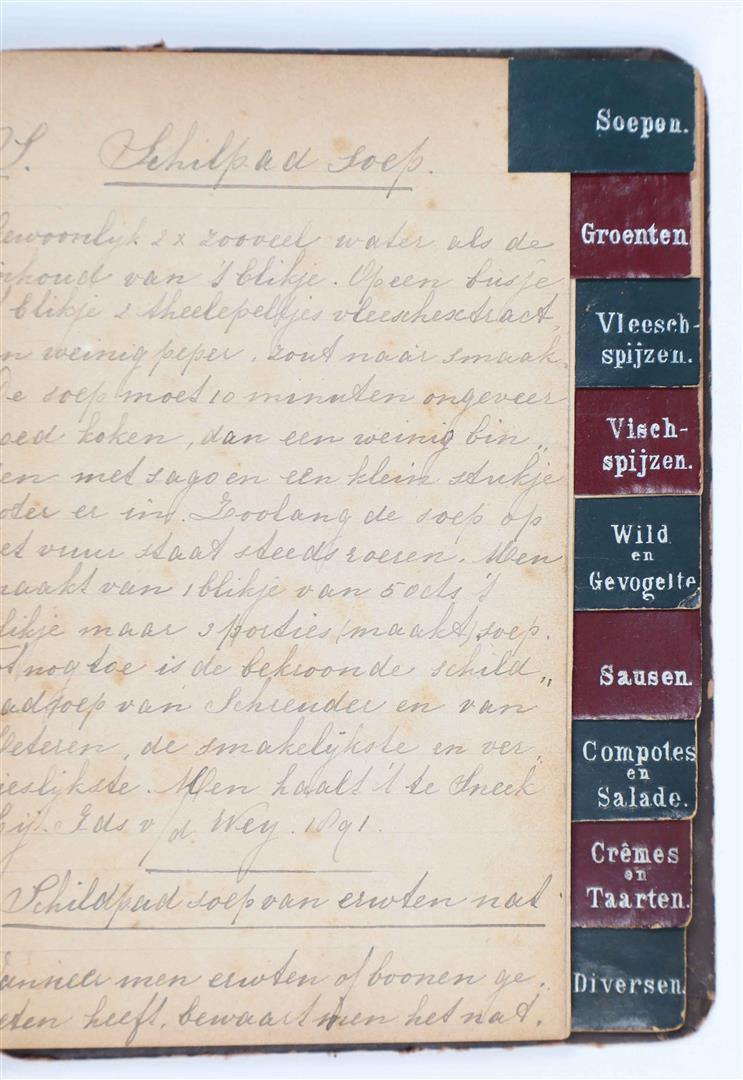 S. Schilpad soep.
ewoonlyk 2 x zooveel water als de
nhoud van 't blikje. Op een busje
blikje 2 theelepeltjes vleeschextract,
n weinig peper, zout naar smaak.
De soep moet 10 minuten ongeveer
oed koken, dan een weinig bin„
en met sago en een klein stukje
oter er in. Zoolang de soep op
et vuur staat steeds roeren. Men
maakt van 1 blikje van 50 cts 't
likje maar 3 porties (maakt) soep.
ot nog toe is de bekroonde schild„
adsoep van Schreuder en van
eteren, de smakelijkste en ver„
ieslijkste. Men haalt 't te Sneek
bij. Ids v/d Wey. 1891.
Schildpad soep van erwten nat.
anneer men erwten of boonen ge„
eten heeft, bewaart men het nat.
Soepen.
Groenten.
Vleesch-
spijzen.
Visch-
spijzen.
Wild
en
Gevogelte
Sausen.
Compotes
en
Salade.
Crêmes
en
Taarten.
Diversen.